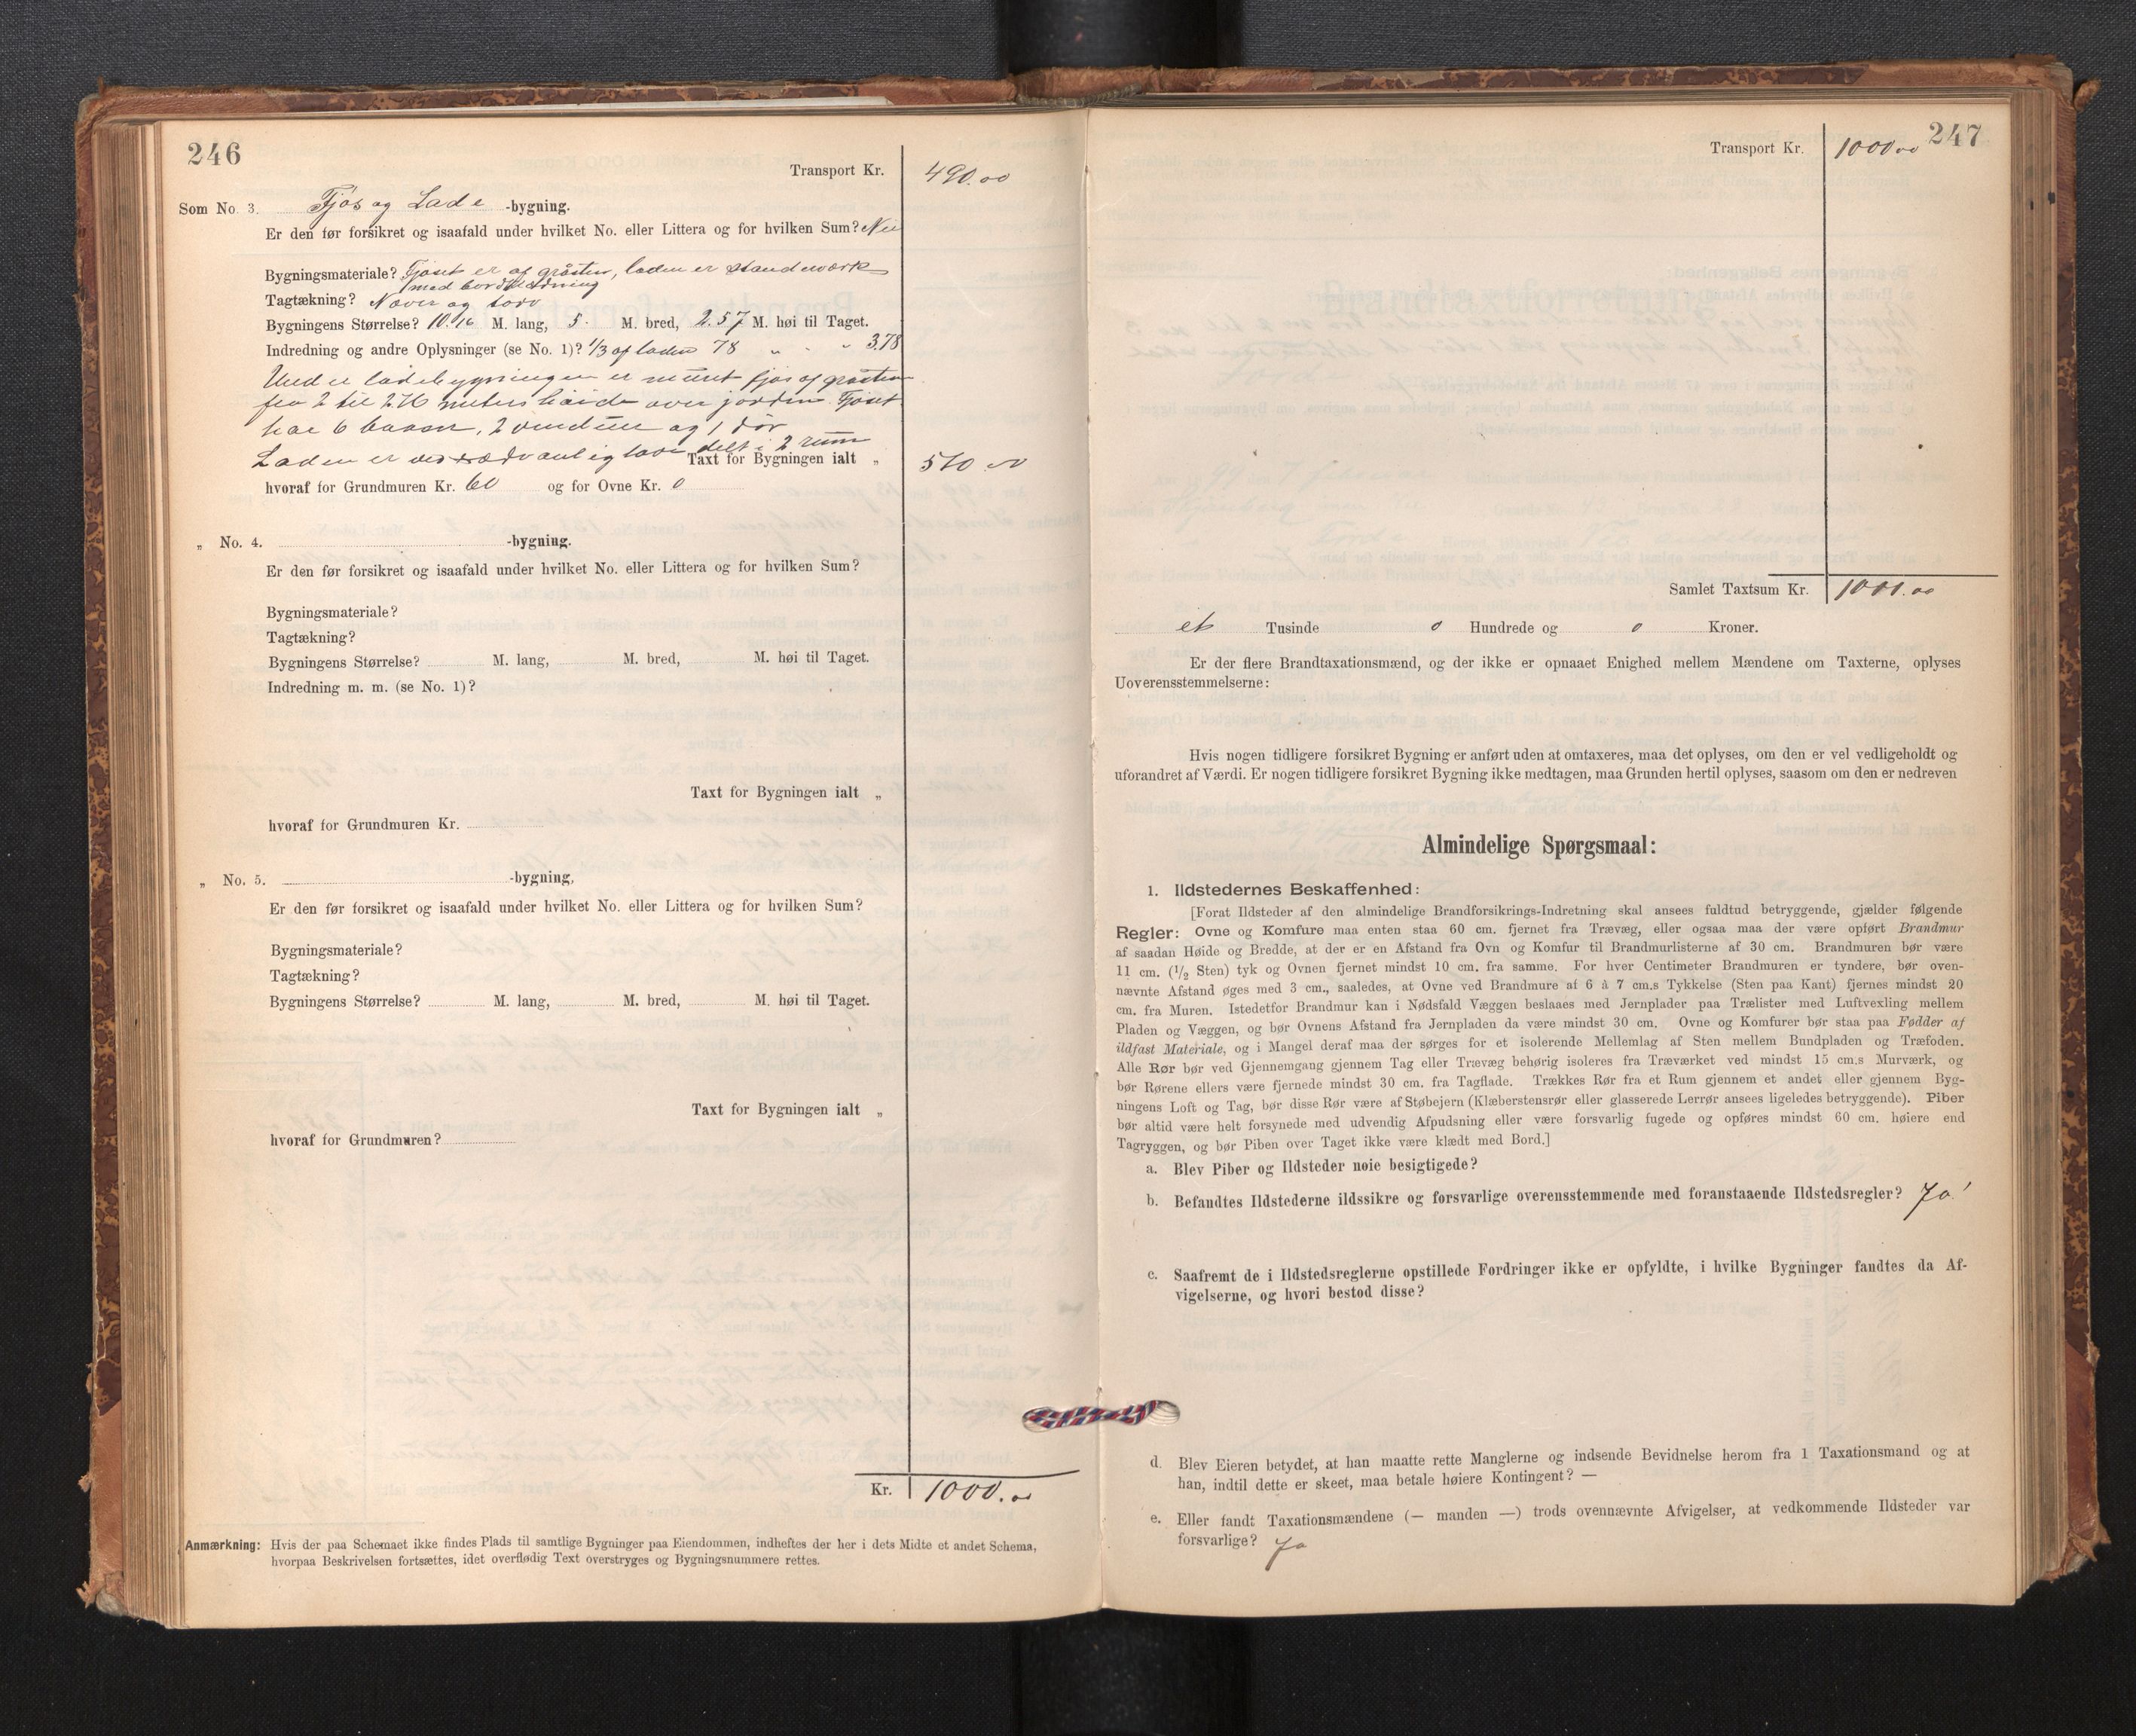 246
Transport Kr. 490.00
Som No. 3. Fjøs og Lade -bygning.
Er den før forsikret og isaafald under hvilket No. eller Littera og for hvilken Sum? Nei
Bygningsmateriale? Fjøset er af gråsten, laden er standværk
med bordklædning
Tagtækning? Næver og torv
Bygningens Størrelse? 10.16 M. lang, 5. M. bred, 2.57 M. høi til Taget.
Indredning og andre Oplysninger (se No. 1)? 1/3 af laden 78 " " " 3.78
Under ladebygningen er muret fjøs af gråsten
fra 2 til 2.76 meters høide over jorden. Fjøset
har 6 baaser, 2 vinduer og 1 dør
Laden er ved sædvanlig lave delt i 2 rum
Taxt for Bygningen ialt „ 510.00
hvoraf for Grundmuren Kr. 60 og for Ovne Kr. 0
„ No. 4. -bygning.
Er den før forsikret og isaafald under hvilket No. eller Littera og for hvilken Sum?
Bygningsmateriale?
Tagtækning?
Bygningens Størrelse? M. lang, M. bred, M. høi til Taget.
Indredning m. m. (se No. 1)?
Taxt for Bygningen ialt „
hvoraf for Grundmuren Kr.
„ No. 5. -bygning,
Er den før forsikret og isaafald under hvilket No. eller Littera og for hvilken Sum?
Bygningsmateriale?
Tagtækning?
Bygningens Størrelse? M. lang, M. bred, M. høi til Taget.
Taxt for Bygningen ialt „
hvoraf for Grundmuren?
Kr. 1000.00
Anmærkning: Hvis der paa Schemaet ikke findes Plads til samtlige Bygninger paa Eiendommen, indheftes der her i dets Midte et andet Schema,
hvorpaa Beskrivelsen fortsættes, idet overflødig Text overstryges og Bygningsnummere rettes.
247
Transport Kr. 1000.00
Samlet Taxtsum Kr. 1000.00
et Tusinde 0 Hundrede og 0 Kroner.
Er der flere Brandtaxationsmænd, og der ikke er opnaaet Enighed mellem Mændene om Taxterne, oplyses
Uoverensstemmelserne:
Hvis nogen tidligere forsikret Bygning er anført uden at omtaxeres, maa det oplyses, om den er vel vedligeholdt og
uforandret af Værdi. Er nogen tidligere forsikret Bygning ikke medtagen, maa Grunden hertil oplyses, saasom om den er nedreven
Almindelige Spørgsmaal:
1. Ildstedernes Beskaffenhed:
[Forat Ildsteder af den almindelige Brandforsikrings-Indretning skal ansees fuldtud betryggende, gjælder følgende
Regler: Ovne og Komfure maa enten staa 60 cm. fjernet fra Trævæg, eller ogsaa maa der være opført Brandmur
af saadan Høide og Bredde, at der er en Afstand fra Ovn og Komfur til Brandmurlisterne af 30 cm. Brandmuren bør være
11 cm. (1/2 Sten) tyk og Ovnen fjernet mindst 10 cm. fra samme. For hver Centimeter Brandmuren er tyndere, bør oven-
nævnte Afstand øges med 3 cm., saaledes, at Ovne ved Brandmure af 6 à 7 cm.s Tykkelse (Sten paa Kant) fjernes mindst 20
cm. fra Muren. Istedetfor Brandmur kan i Nødsfald Væggen beslaaes med Jernplader paa Trælister med Luftvexling mellem
Pladen og Væggen, og bør Ovnens Afstand fra Jernpladen da være mindst 30 cm. Ovne og Komfurer bør staa paa Fødder af
ildfast Materiale, og i Mangel deraf maa der sørges for et isolerende Mellemlag af Sten mellem Bundpladen og Træfoden.
Alle Rør bør ved Gjennemgang gjennem Tag eller Trævæg behørig isoleres fra Træværket ved mindst 15 cm.s Murværk, og
bør Rørene ellers være fjernede mindst 30 cm. fra Tagflade. Trækkes Rør fra et Rum gjennem et andet eller gjennem Byg-
ningens Loft og Tag, bør disse Rør være af Støbejern (Klæberstensrør eller glasserede Lerrør ansees ligeledes betryggende). Piber
bør altid være helt forsynede med udvendig Afpudsning eller være forsvarlig fugede og opføres mindst 60 cm. høiere end
Tagryggen, og bør Piben over Taget ikke være klædt med Bord.]
a. Blev Piber og Ildsteder nøie besigtigede?
b. Befandtes Ildstederne ildssikre og forsvarlige overensstemmende med foranstaaende Ildstedsregler? Ja!
c. Saafremt de i Ildstedsreglerne opstillede Fordringer ikke er opfyldte, i hvilke Bygninger fandtes da Af-
vigelserne, og hvori bestod disse?
d. Blev Eieren betydet, at han maatte rette Manglerne og indsende Bevidnelse herom fra 1 Taxationsmand og at
han, indtil dette er skeet, maa betale høiere Kontingent? —
e. Eller fandt Taxationsmændene (— manden —) trods ovennævnte Afvigelser, at vedkommende Ildsteder var
forsvarlige? Ja